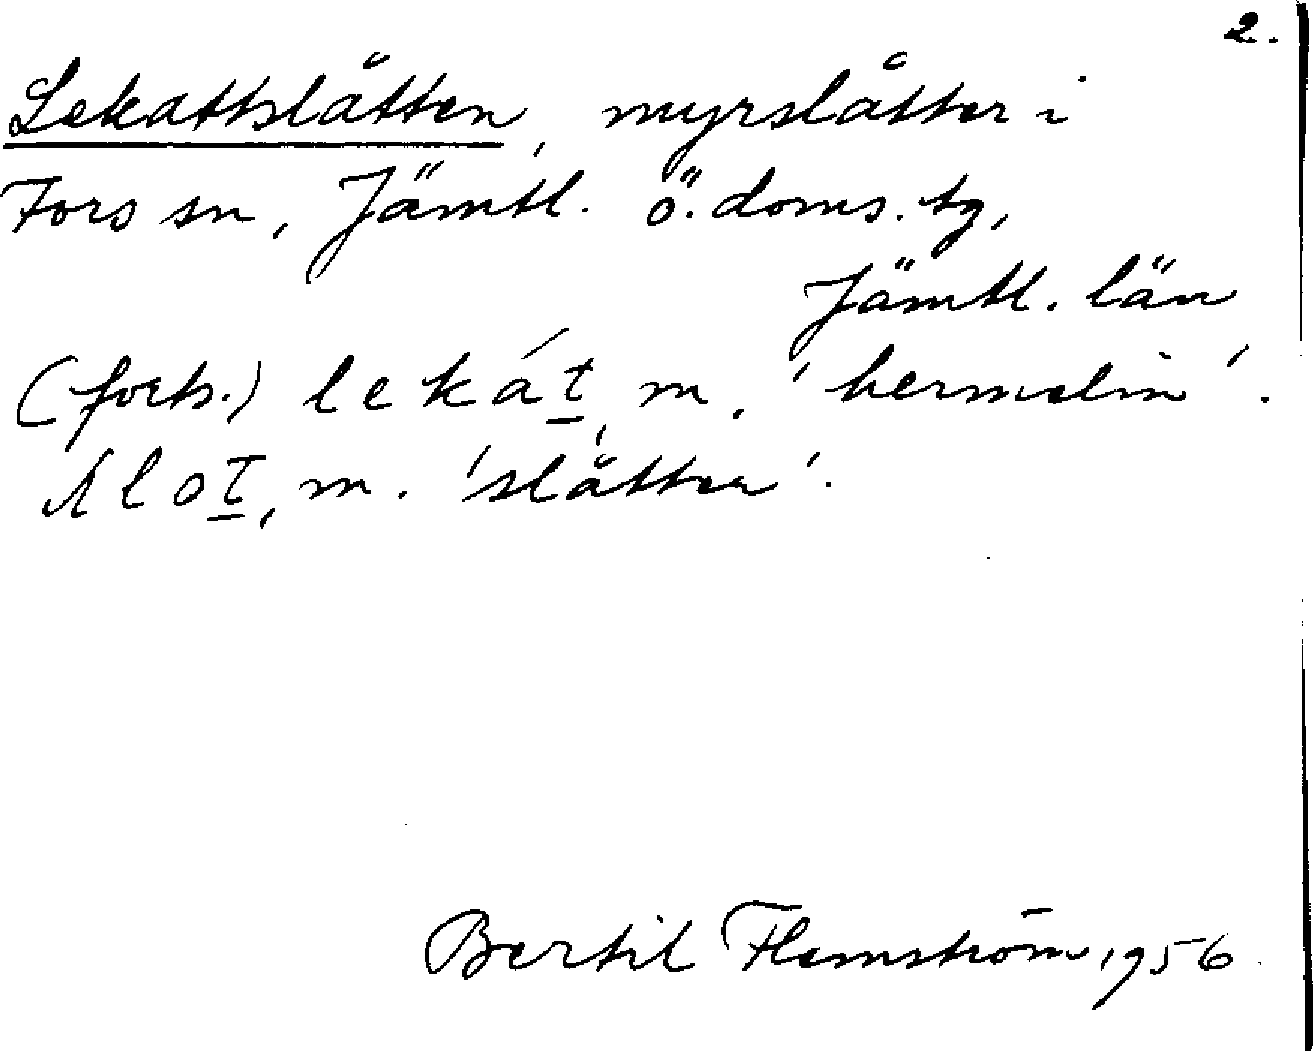 2.
Lekattslåtten, myrslåtter i
Fors sn, Jämtl. ö. doms. tg,
Jämtl. län
(forts.) lekát, m. 'hermelin'.
slot, m. 'slåtter'.
Bertil Flemström, 1956